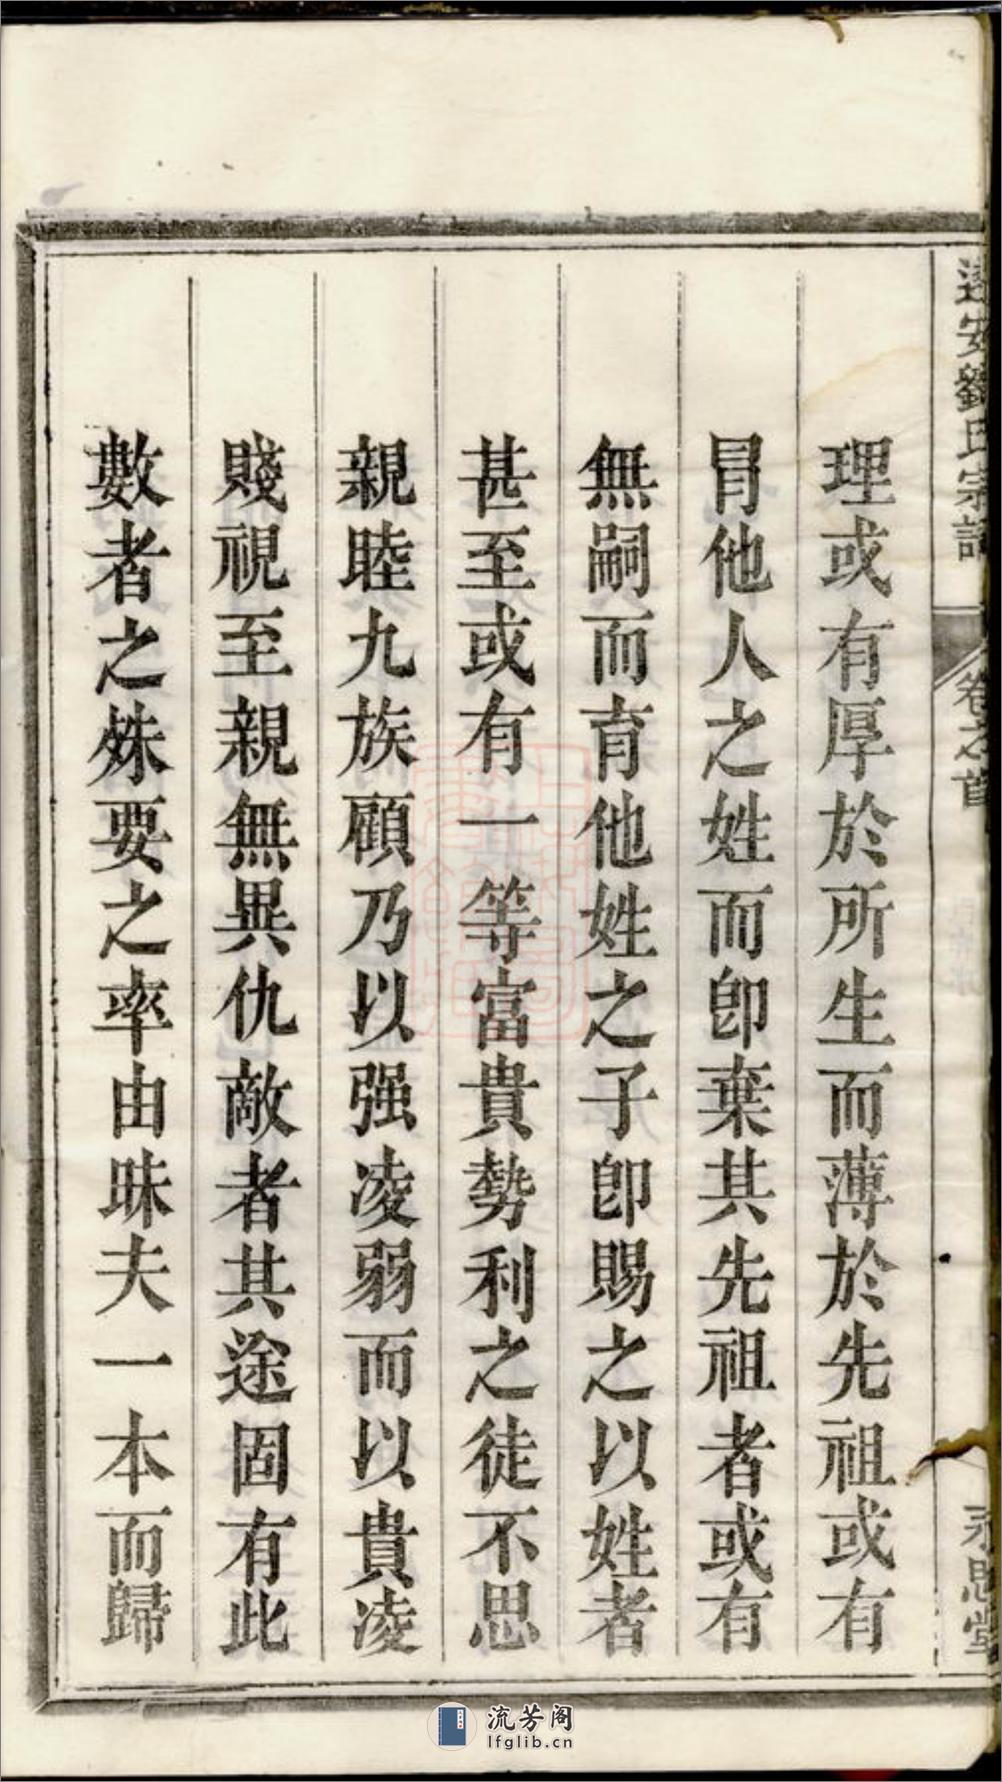 遠安劉氏宗譜 卷之首 永思堂
理或有厚於所生而薄於先祖或有
冐他人之姓而卽棄其先祖者或有
無嗣而育他姓之子卽賜之以姓者
甚至或有一等富貴勢利之徒不思
親睦九族顧乃以强凌弱而以貴凌
賤視至親無異仇敵者其途固有此
數者之殊要之率由昧夫一本而歸
流芳阁
lfglib.cn